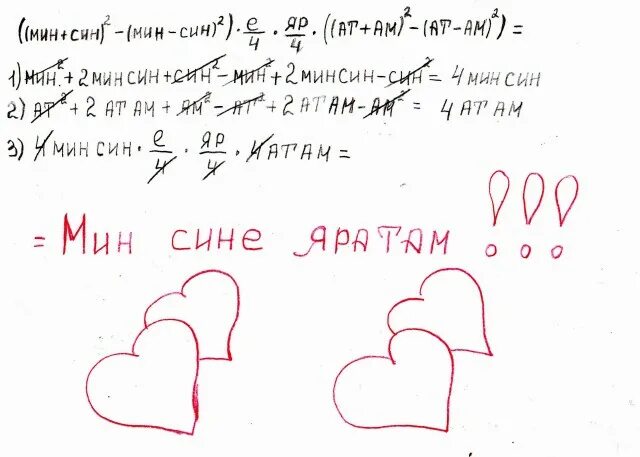 ((мин+син)²-(мин-син)²)·е/4·яр/4·((ат+ам)²-(ат-ам)²)=
1) мин²+2минсин+син²-мин²+2минсин-син²=4минсин
2) ат²+2атам+ам²-ат²+2атам-ам²=4атам
3) 4минсин·е/4·яр/4·4атам=
=Мин сине яратам!!!